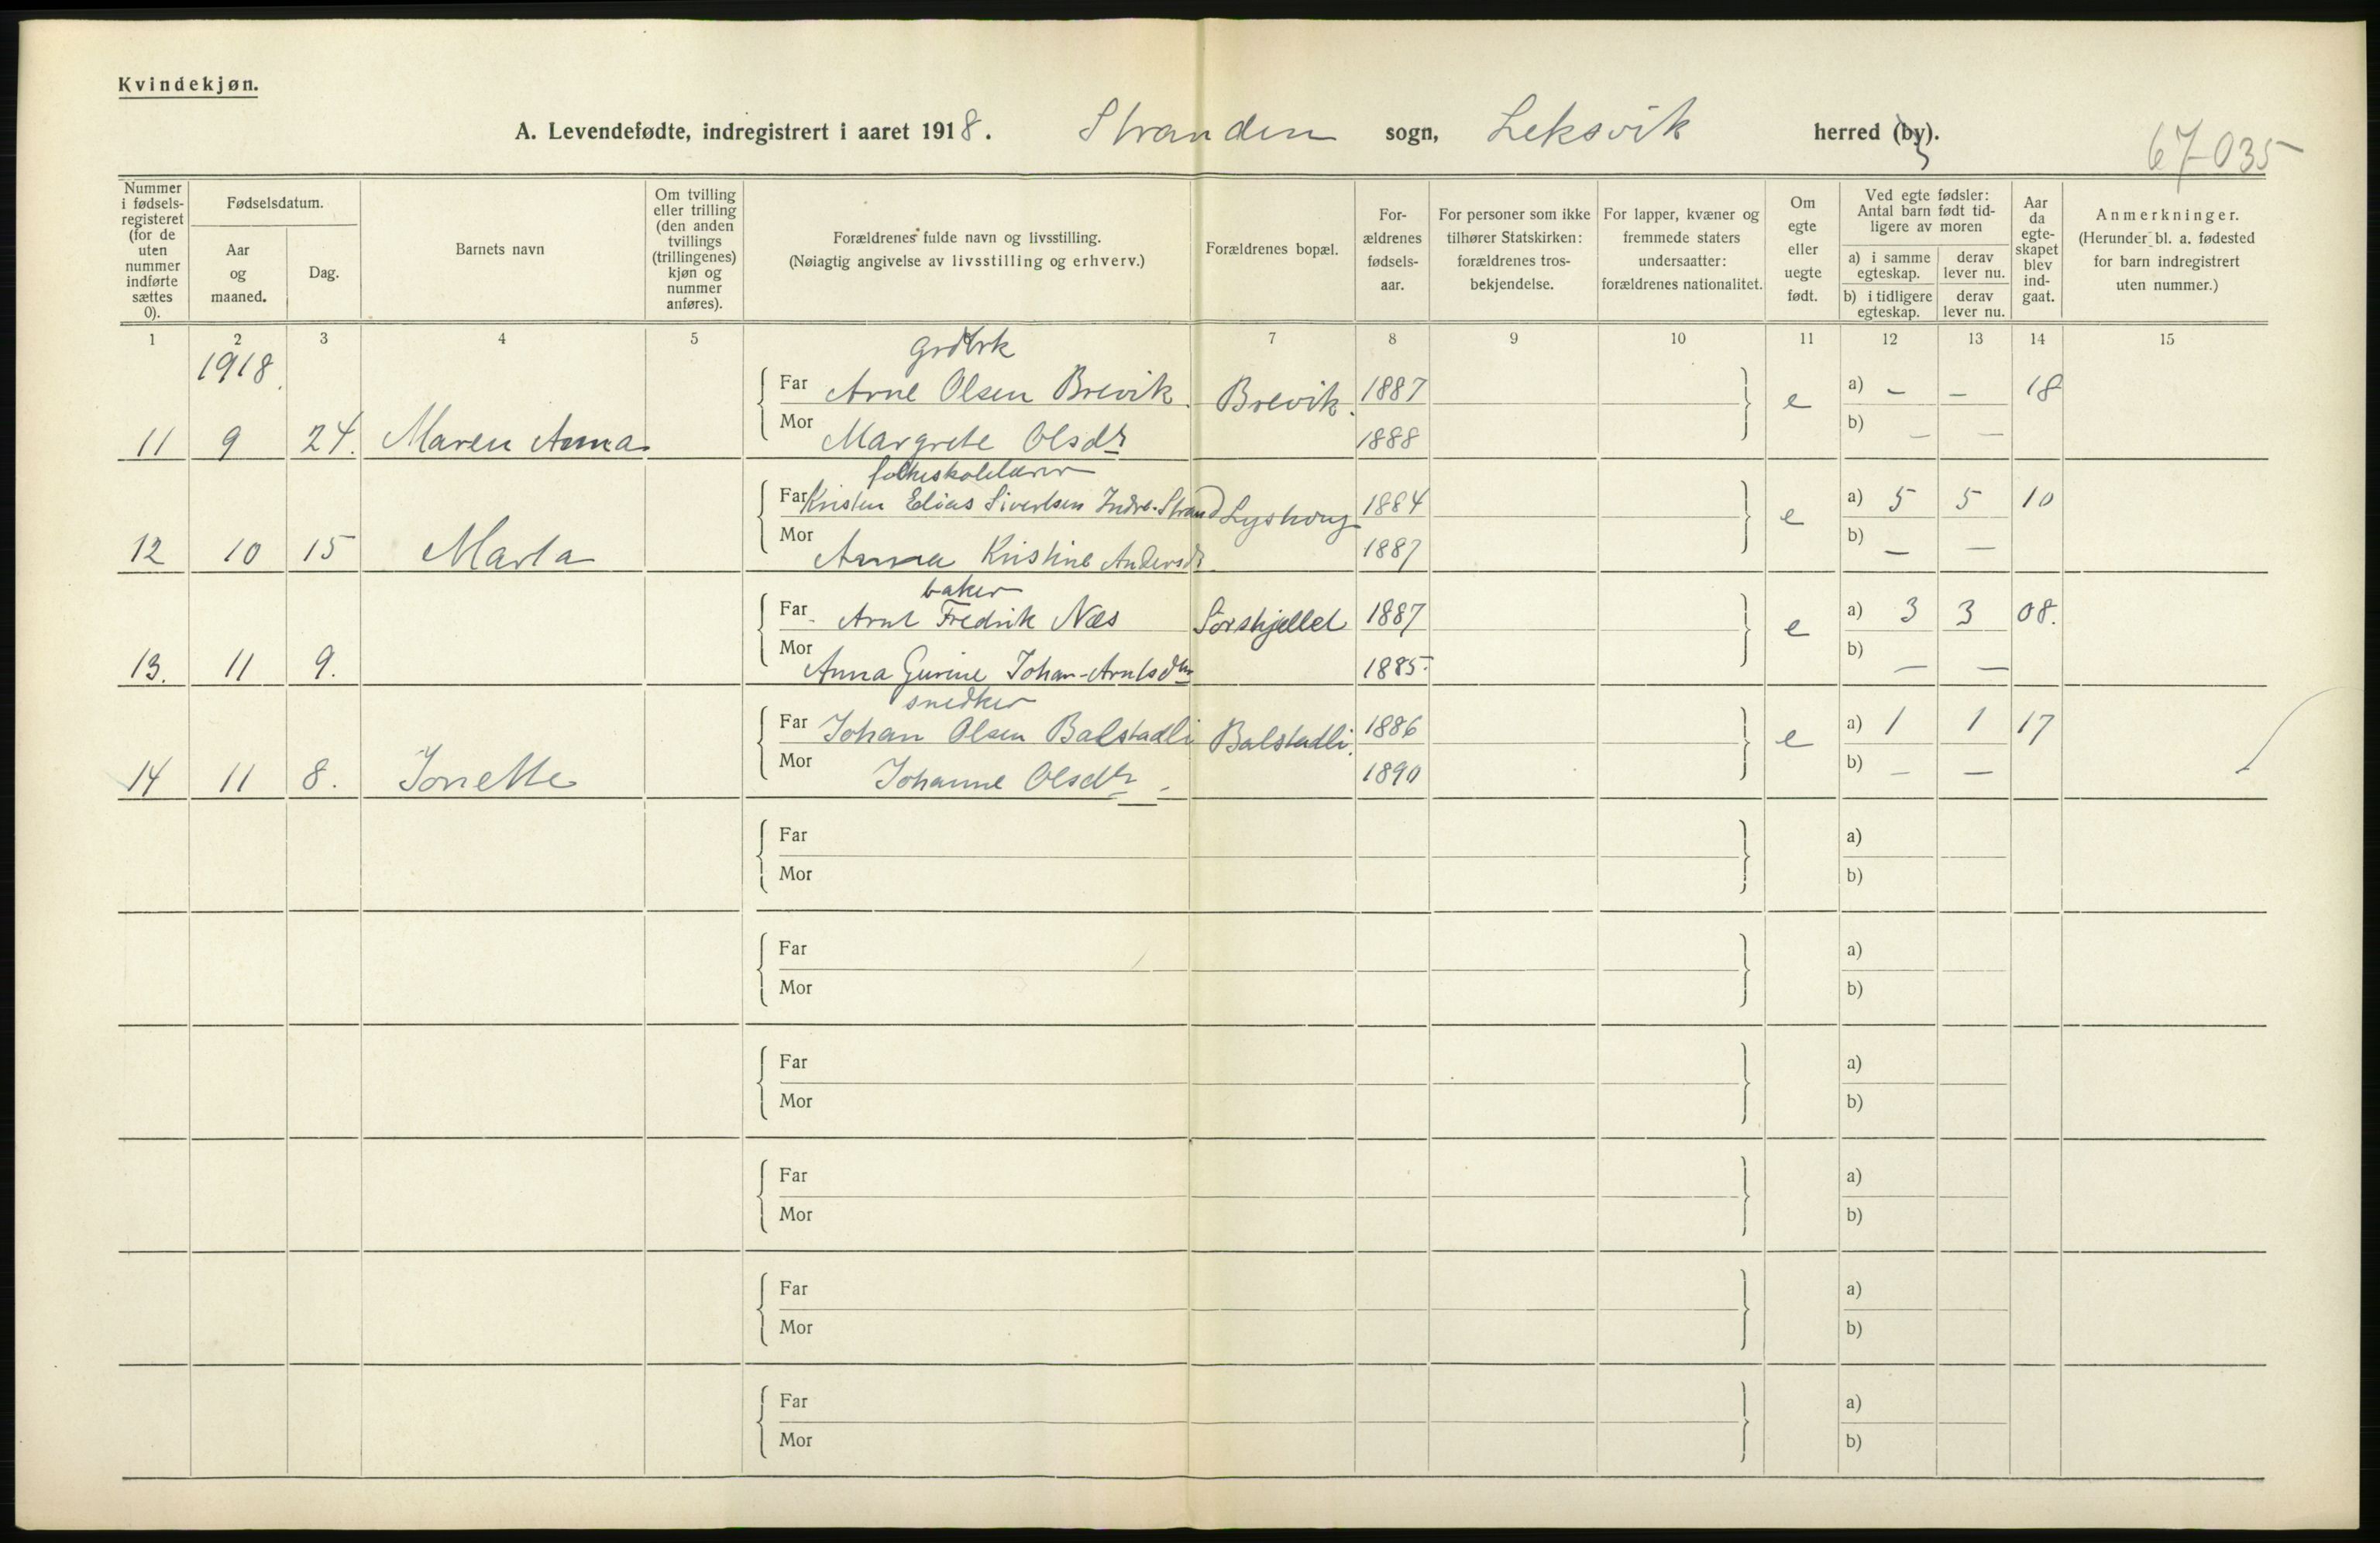 Kvindekjøn.
A. Levendefødte, indregistrert i aaret 1918. Stranden sogn, Leksvik herred (by).
67-035
Nummer i fødsels-registeret (for de uten nummer indførte sættes 0).
Fødselsdatum.
Aar og maaned.
Dag.
Barnets navn
Om tvilling eller trilling (den anden tvillings (trillingenes) kjøn og nummer anføres).
Forældrenes fulde navn og livsstilling.
(Nøiagtig angivelse av livsstilling og erhverv.)
Forældrenes bopæl.
For-ældrenes fødsels-aar.
For personer som ikke tilhører Statskirken: forældrenes tros-bekjendelse.
For lapper, kvæner og fremmede staters undersaatter: forældrenes nationalitet.
Om egte eller uegte født.
Ved egte fødsler: Antal barn født tid-ligere av moren
a) i samme egteskap.
derav lever nu.
b) i tidligere egteskap.
derav lever nu.
Aar da egte-skapet blev ind-gaat.
Anmerkninger.
(Herunder bl. a. fødested for barn indregistrert uten nummer.)
1 2 3 4 5 7 8 9 10 11 12 13 14 15
1918
Far Arne Olsen Brevik Brevik. 1887 e a) — — 18
11 9 24. Maren Anna Mor Margrete Olsdr 1888 b) — —
folkeskolelærer
Far Kristen Elias Sivertsen Indre-Strand Lyshoug 1884 e a) 5 5 10
12 10 15 Marta Mor Anna Kristine Andersdr 1887 b) — —
baker
Far Arnt Fredrik Næs Sørskjellet 1887 e a) 3 3 08.
13. 11 9. Mor Anna Gurine Johan-Arntsdtr 1885 b) — —
snedker
Far Johan Olsen Balstadli Balstadli. 1886 e a) 1 1 17
14 11 8. Jonette Mor Johanne Olsdtr 1890 b) — —
Far a)
Mor b)
Far a)
Mor b)
Far a)
Mor b)
Far a)
Mor b)
Far a)
Mor b)
Far a)
Mor b)